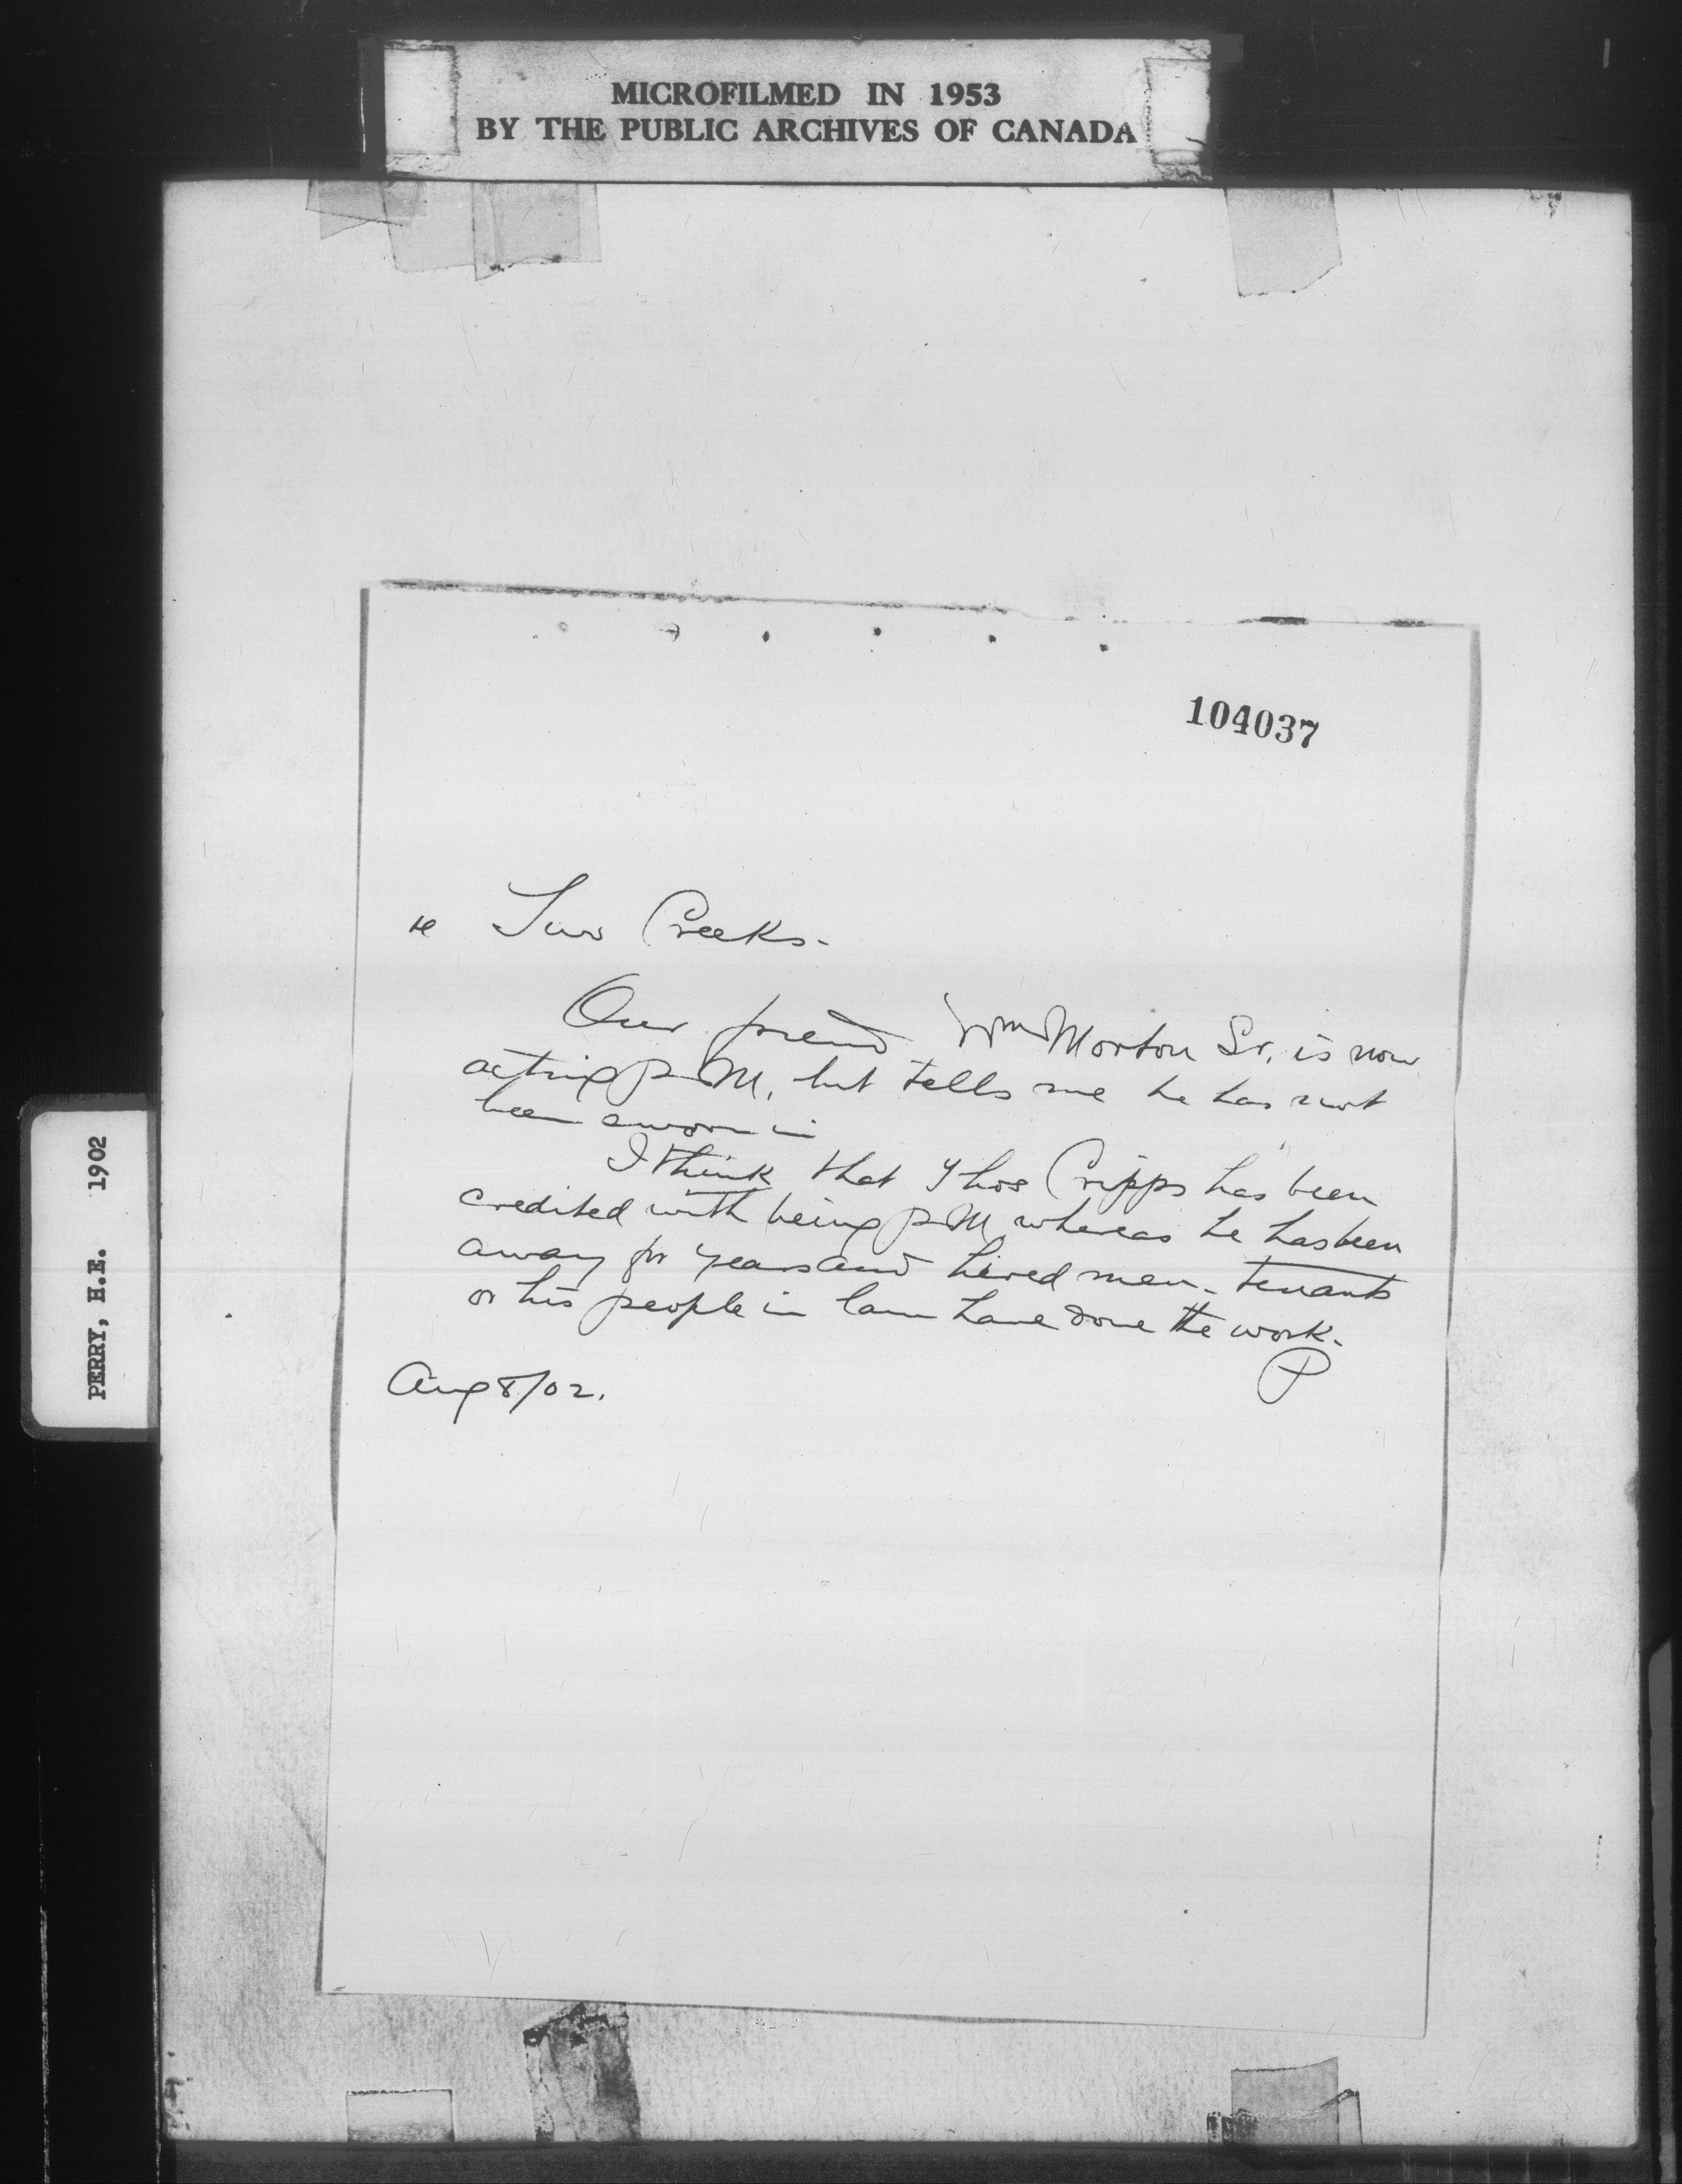 MICROFILMED IN 1953
BY THE PUBLIC ARCHIVES OF CANADA
PERRY, H.E. 1902
104037
re Two Creeks.
Our friend Wm Morton Sr. is now
acting P.M. but tells me he has not
been sworn in
I think that Thos Cripps has been
credited with being P.M whereas he has been
away for years and hired men - tenants
or his people in law have done the work.
P
Aug 8/02.